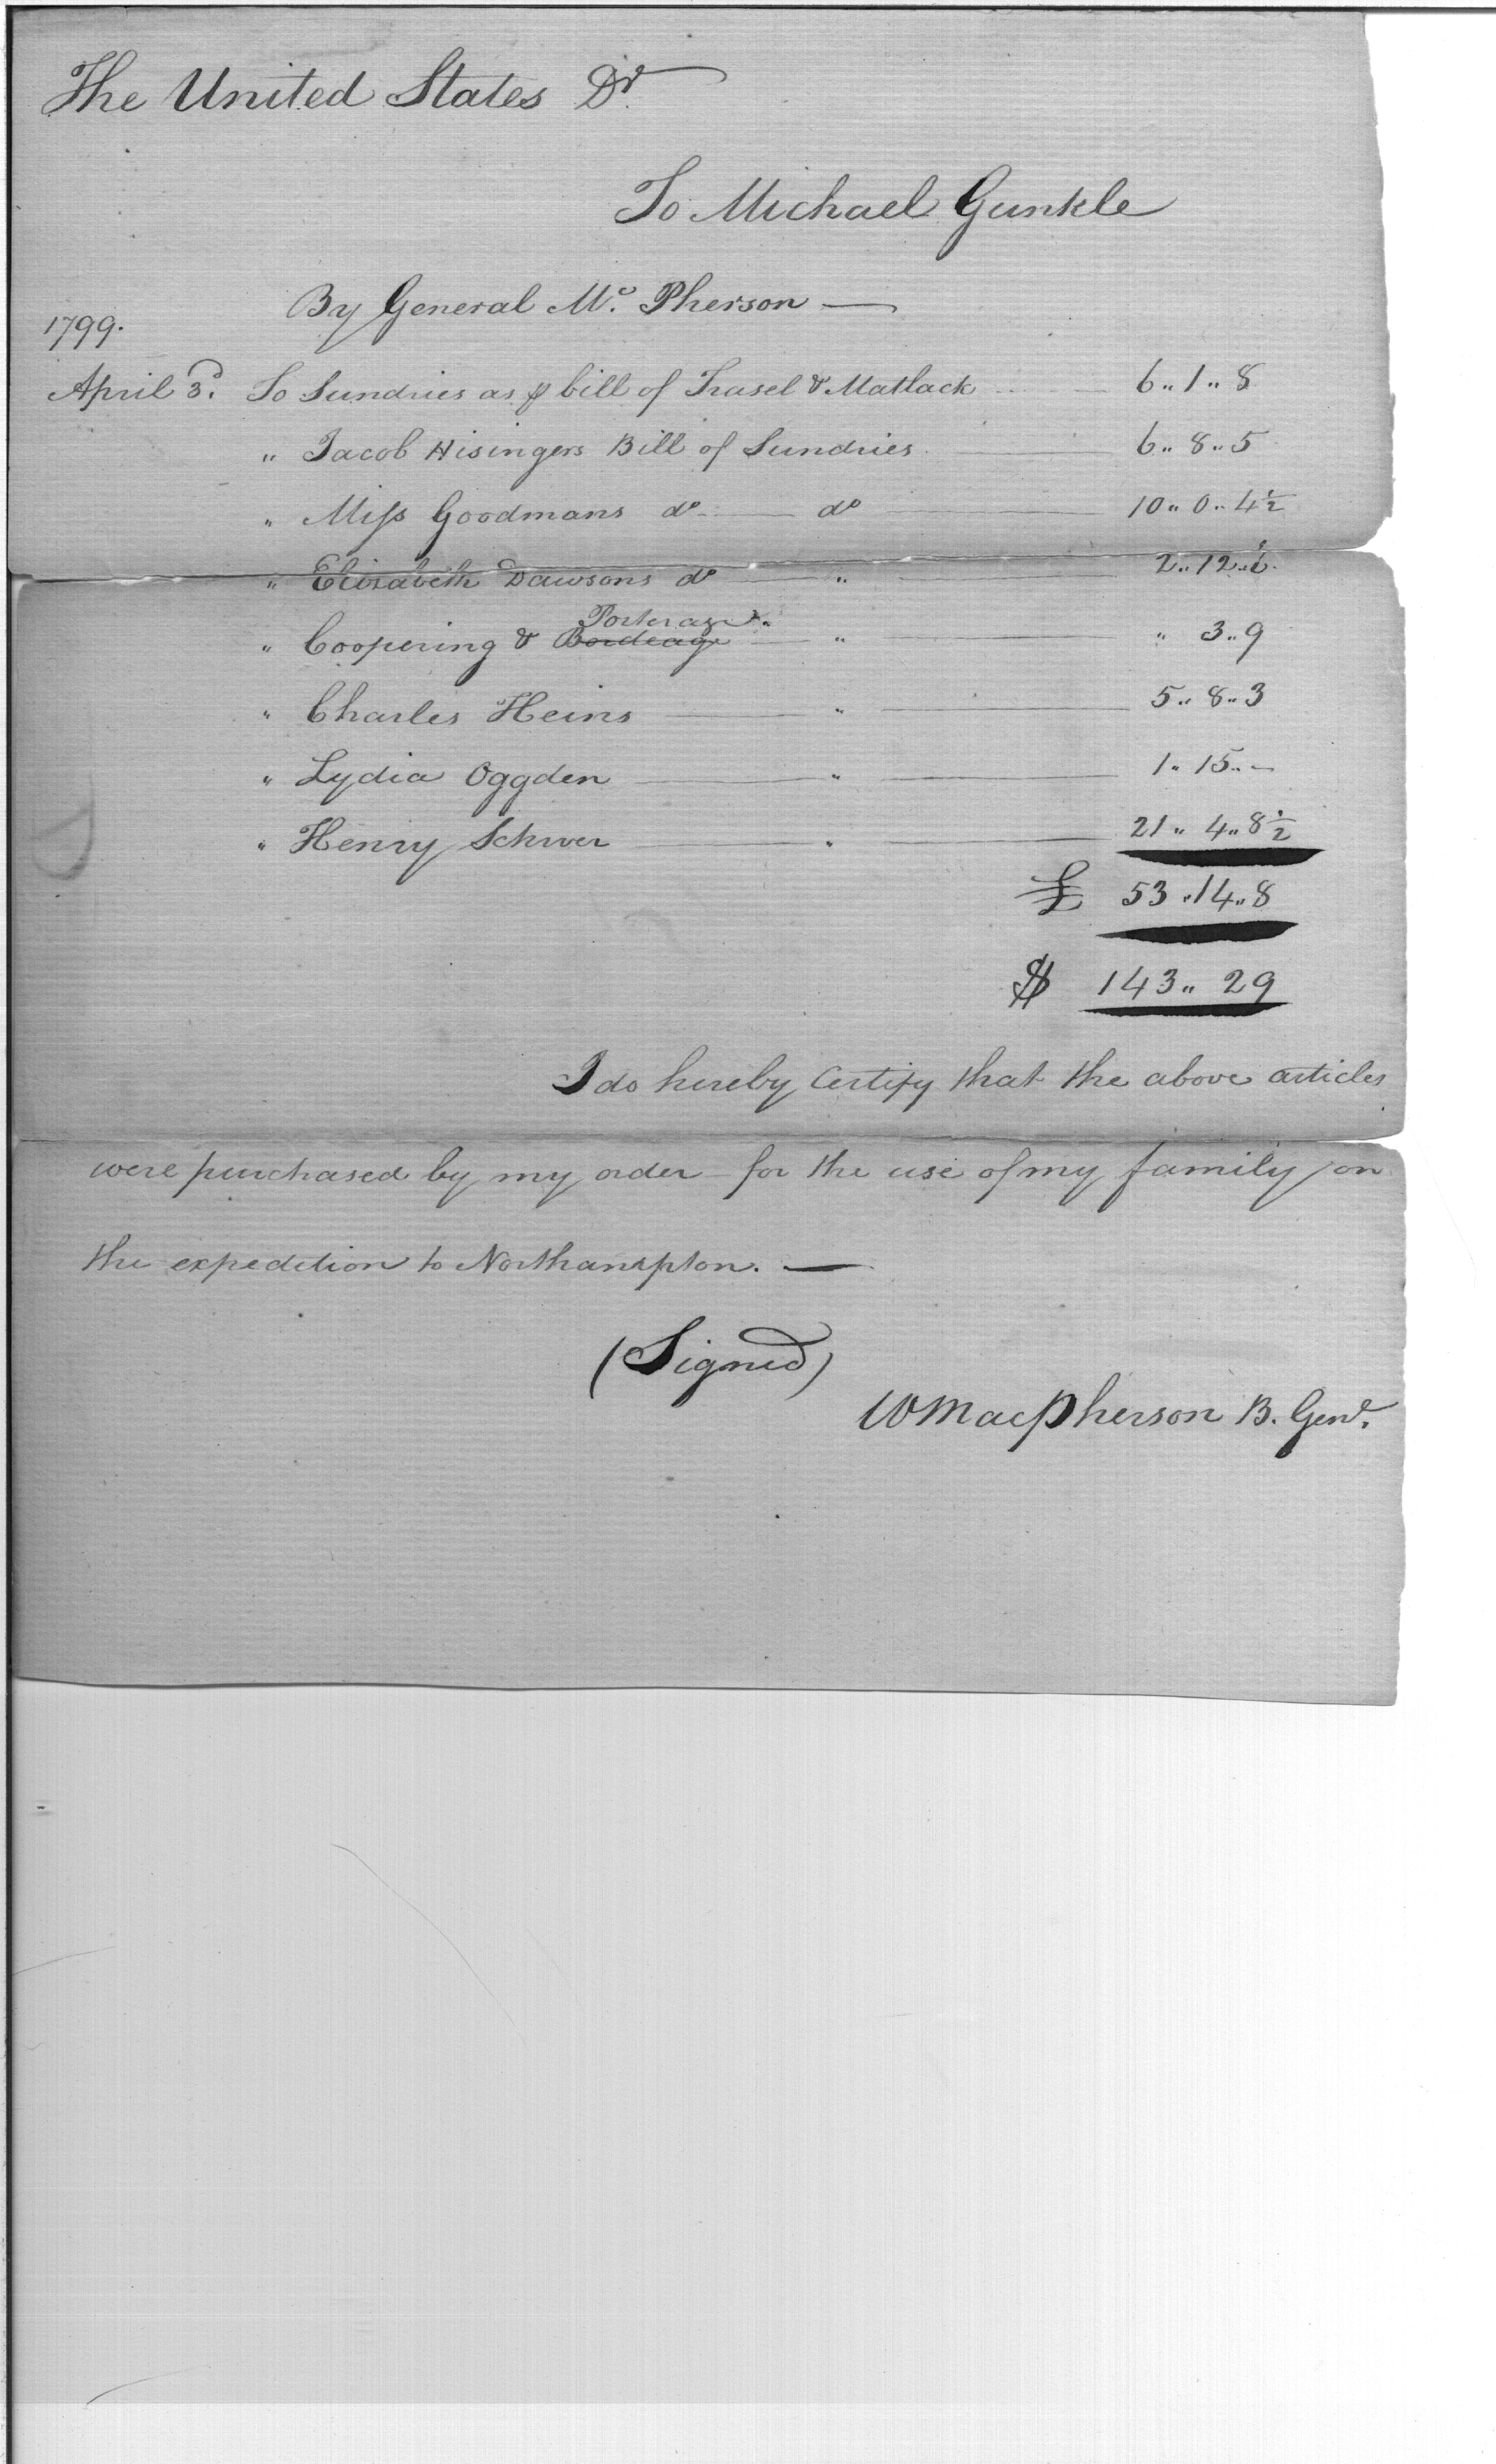 The United States Dr
To Michael Gunkle
By General Mc. Pherson —
1799.
April 3d. To Sundries as ⅌ bill of Trasel & Matlack 6,, 1,, 8
,, Jacob Hisingers Bill of Sundries 6,, 8,, 5
,, Miss Goodmans do — do 10,, 0,, 4½
,, Elizabeth Dawsons do ,, 2,, 12,, 6
Porterage
,, Coopering & Bordeage ,, ,, 3,, 9
,, Charles Heins ,, 5,, 8,, 3
,, Lydia Oggden ,, 1,, 15,, –
,, Henry Schwer ,, 21,, 4,, 8½
£ 53,, 14,, 8
$ 143,, 29
I do hereby Certify that the above articles
were purchased by my order for the use of my family on
the expedition to Northampton. —
(Signed)
W MacPherson B. Genl.